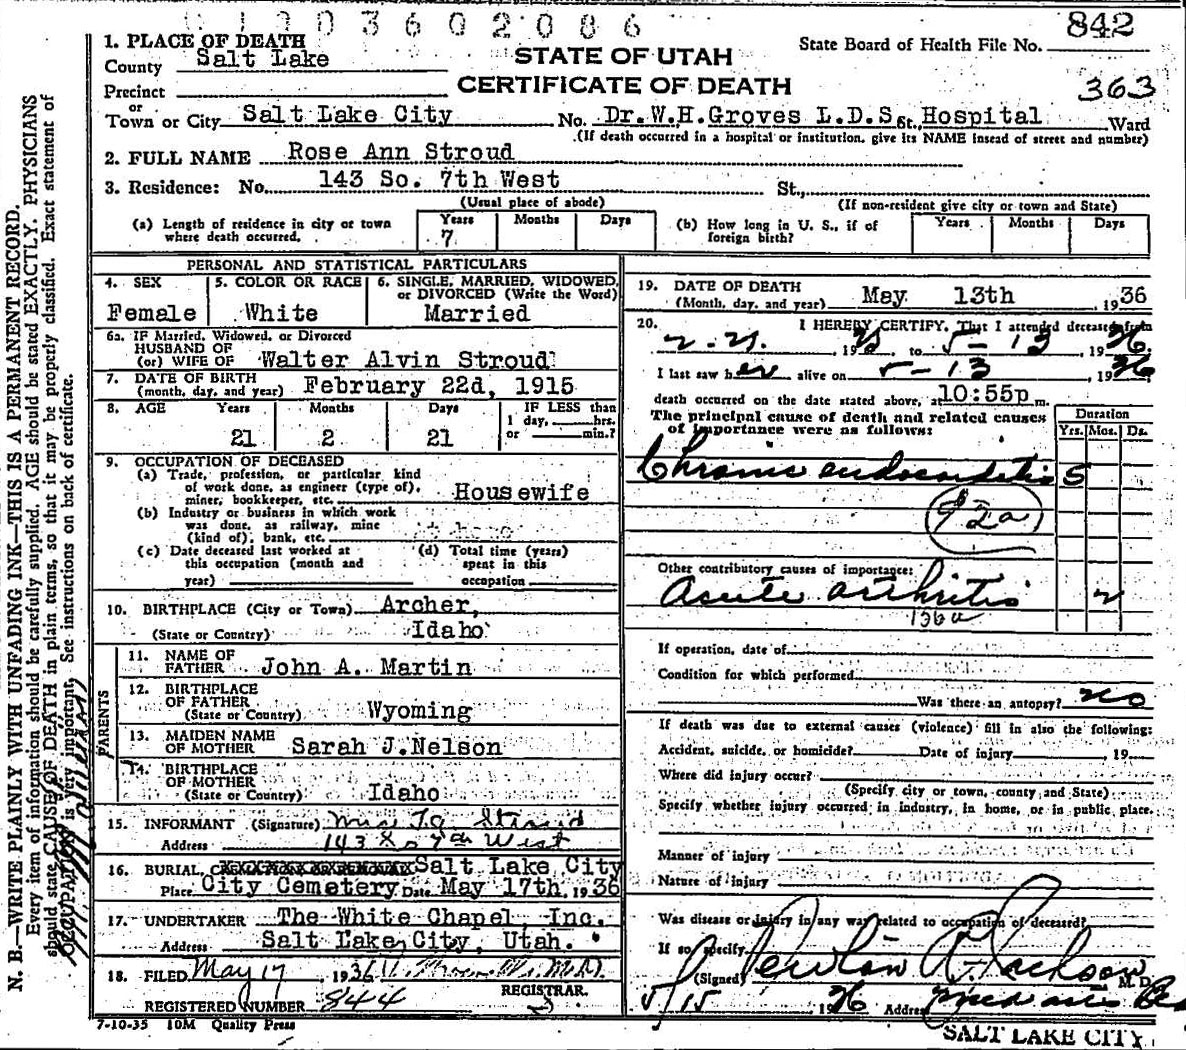 0 1 9 0 3 6 0 2 0 8 6
842
1. PLACE OF DEATH
County Salt Lake
STATE OF UTAH
CERTIFICATE OF DEATH
State Board of Health File No.
363
Precinct
or
Town or City Salt Lake City No. Dr.W.H.Groves L.D.S. St., Hospital Ward
(If death occurred in a hospital or institution, give its NAME insead of street and number)
2. FULL NAME Rose Ann Stroud
3. Residence: No. 143 So. 7th West St.,
(Usual place of abode) (If non-resident give city or town and State)
(a) Length of residence in city or town where death occurred. Years 7 Months Days
(b) How long in U. S., if of foreign birth? Years Months Days
PERSONAL AND STATISTICAL PARTICULARS
4. SEX Female
5. COLOR OR RACE White
6. SINGLE, MARRIED, WIDOWED, or DIVORCED (Write the Word) Married
6a. IF Married, Widowed, or Divorced
HUSBAND OF
(or) WIFE OF Walter Alvin Stroud
7. DATE OF BIRTH
(month, day, and year) February 22d, 1915
8. AGE Years Months Days IF LESS than
1 day, hrs.
or min.?
21 2 21
9. OCCUPATION OF DECEASED
(a) Trade, profession, or particular kind
of work done, as engineer (type of),
miner, bookkeeper, etc. Housewife
(b) Industry or business in which work
was done, as railway, mine
(kind of), bank, etc.
(c) Date deceased last worked at
this occupation (month and
year)
(d) Total time (years)
spent in this
occupation
10. BIRTHPLACE (City or Town) Archer,
(State or Country) Idaho
PARENTS
11. NAME OF
FATHER John A. Martin
12. BIRTHPLACE
OF FATHER
(State or Country) Wyoming
13. MAIDEN NAME
OF MOTHER Sarah J.Nelson
14. BIRTHPLACE
OF MOTHER
(State or Country) Idaho
15. INFORMANT (Signature) Mrs Stroud
Address 143 So 7th West
16. BURIAL, CREMATION OR REMOVAL Salt Lake City
Place City Cemetery Date May 17th, 1936
17. UNDERTAKER The White Chapel, Inc.
Address Salt Lake City, Utah.
18. FILED May 17, 1936 M.D.
REGISTRAR.
REGISTERED NUMBER 844
7-10-35 10M Quality Press
19. DATE OF DEATH
(Month, day, and year) May 13th, 1936
20. I HEREBY CERTIFY, That I attended deceased from
, 19 to 5-13, 1936.
I last saw her alive on 5-13, 1936
death occurred on the date stated above, at 10:55p m.
The principal cause of death and related causes
of importance were as follows:
Duration
Yrs. Mos. Ds.
Chronic endocarditis 5
92a
Other contributory causes of importance:
Acute arthritis 2
If operation, date of
Condition for which performed
Was there an autopsy? no
If death was due to external causes (violence) fill in also the following:
Accident, suicide, or homicide? Date of injury , 19
Where did injury occur?
(Specify city or town, county and State)
Specify whether injury occurred in industry, in home, or in public place.
Manner of injury
Nature of injury
Was disease or injury in any way related to occupation of deceased?
If so, specify
(Signed) M. D.
5/15 1936 Address Med Arts
SALT LAKE CITY
N. B.—WRITE PLAINLY WITH UNFADING INK—THIS IS A PERMANENT RECORD.
Every item of information should be carefully supplied. AGE should be stated EXACTLY. PHYSICIANS
should state CAUSE OF DEATH in plain terms, so that it may be properly classified. Exact statement of
OCCUPATION is very important. See instructions on back of certificate.